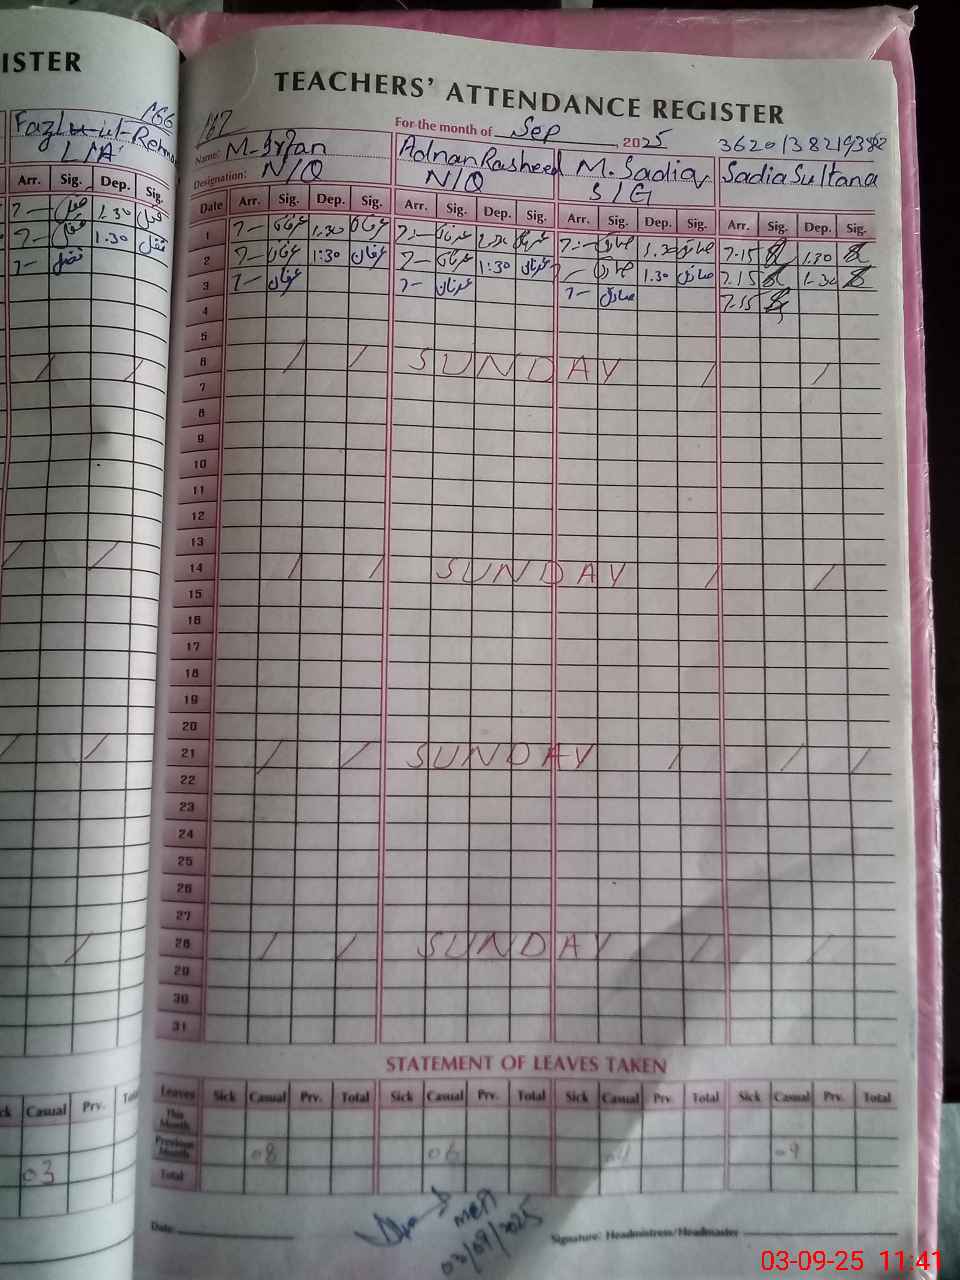 ISTER
166
Fazl-ul-Rehm
Arr. Sig. Dep. Sig.
7— 1.30
7— 1.30
7—
ck Casual Prv. Tot
03
TEACHERS' ATTENDANCE REGISTER
167
For the month of Sep, 2025
Name: M. Irfan Adnan Rasheed M. Sadiq Sadia Sultana
Designation: N/Q N/Q
Date Arr. Sig. Dep. Sig. Arr. Sig. Dep. Sig. Arr. Sig. Dep. Sig. Arr. Sig. Dep. Sig.
1 7— عرفان 1.30 عرفان 7:— عدنان 1.30 عدنان 7:— صادق 1.30 صادق 7.15 1.30
2 7— عرفان 1:30 عرفان 7— عدنان 1:30 عدنان — صادق 1.30 صادق 7.15 1.30
3 7— عرفان 7— عدنان 7— صادق 7.15
4
5
6
7 / / SUNDAY / /
8
9
10
11
12
13
14 / / SUNDAY / /
15
16
17
18
19
20
21 / / SUNDAY / / /
22
23
24
25
26
27
28 / / SUNDAY / /
29
30
31
STATEMENT OF LEAVES TAKEN
Leaves Sick Casual Prv. Total Sick Casual Prv. Total Sick Casual Prv. Total Sick Casual Prv. Total
This Month
Previous Month 08 06 04 09
Total
MEA
03/09/2025
Date: Signature: Headmistress/Headmaster
03-09-25 11:41